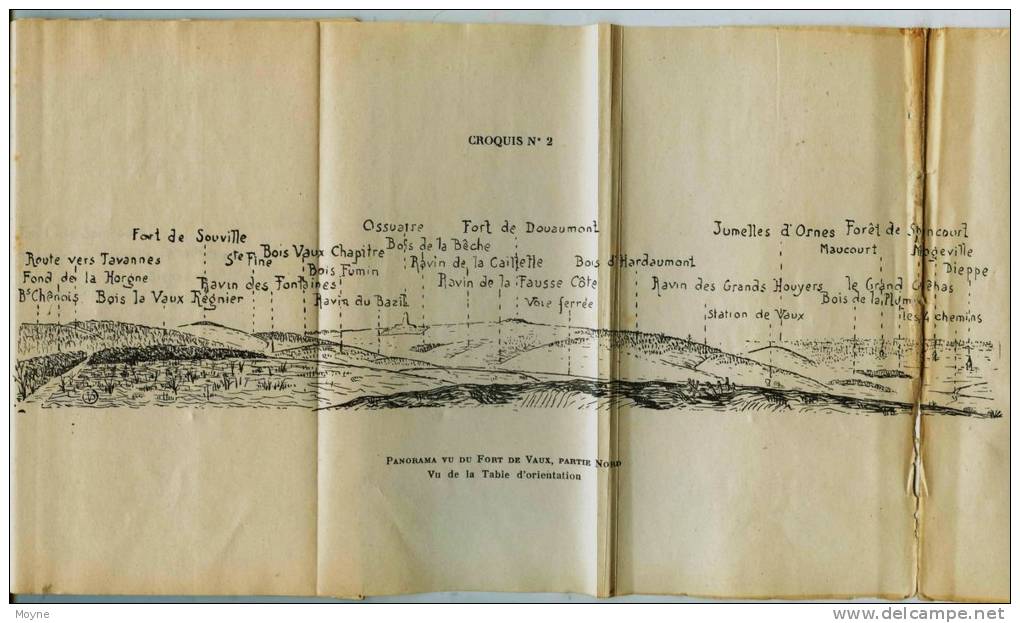 CROQUIS N° 2
Ossuaire Fort de Douaumont Jumelles d'Ornes Forêt de
Fort de Souville Bois de la Bêche Maucourt Mogeville
Route vers Tavannes Ste Fine Bois Vaux Chapitre Ravin de la Caillette Bois d'Hardaumont Dieppe
Fond de la Horgne Ravin des Fontaines Bois Fumin Ravin de la Fausse Côte Ravin des Grands Houyers le Grand
Bs Chênois Bois la Vaux Régnier Ravin du Bazil Voie ferrée Station de Vaux Bois de la les 4 chemins
PANORAMA VU DU FORT DE VAUX, PARTIE NORD
Vu de la Table d'orientation
Moyne
www.delcampe.net